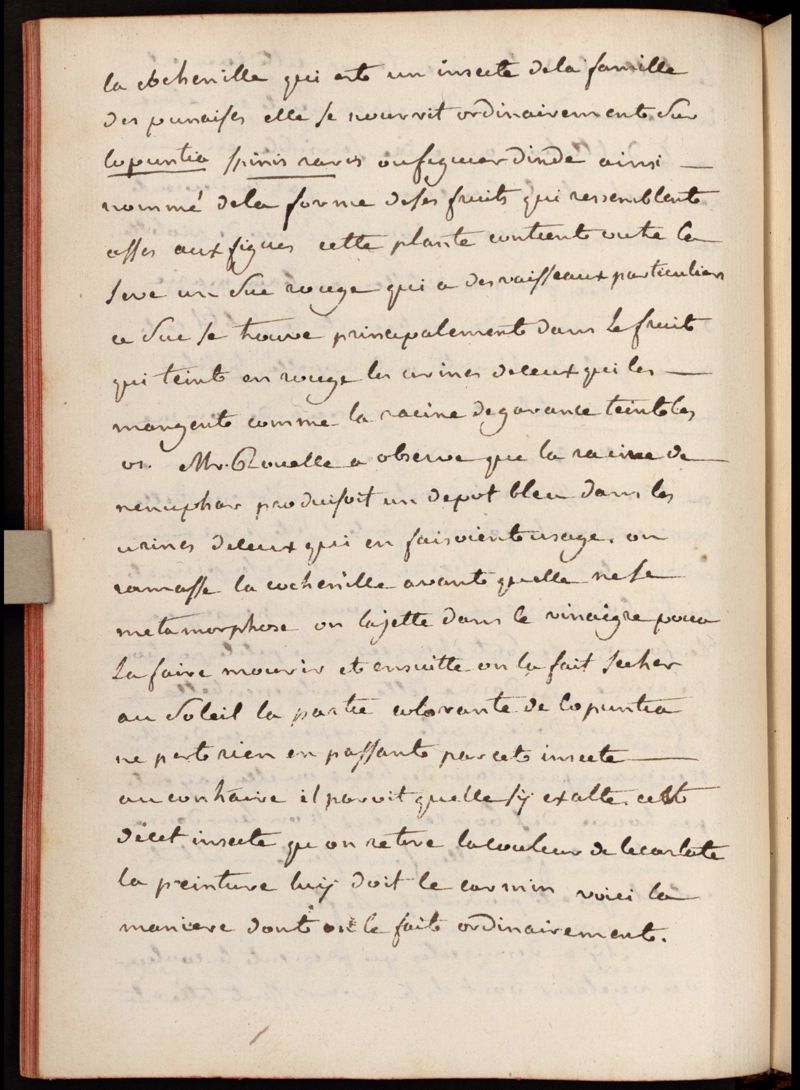 la cochenille qui est un insecte dela famille
des punaises elle se nourrit ordinairement sur
lopuntia spinis raris ou figuier dinde ainsi —
nommé dela forme deses fruits qui ressemblent
asses aux figues cette plante contient outre la
seve un suc rouge qui a des vaisseaux particuliers
ce suc se trouve principalement dans le fruit
qui teint en rouge les urines deceux qui les —
mangent comme la racine degarance teint les
os. Mr. Rouelle a observe que la racine de —
nenuphar produisoit un depot bleu dans les
urines deceux qui en faisoient usage. on
ramasse la cochenille avant quelle ne se
metamorphose on lajette dans le vinaigre pour
la faire mourir et ensuitte on la fait secher
au soleil la partie colorante de lopuntia
ne pert rien en passant par cet insecte —
au contraire il paroit quelle sy exalte. cest
decet insecte qu on retire la couleur de lecarlate
la peinture luy doit le carmin voici la
maniere dont on le fait ordinairement.